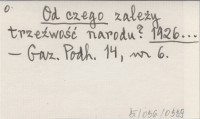 Od czego zależy
trzeźwość narodu? 1926...
— Gaz. Podh. 14, nr 6.